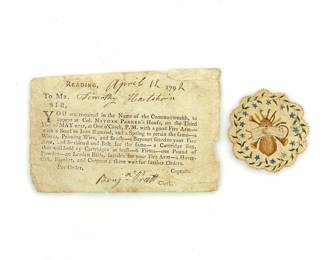 READING, April 12 179
To Mr. Timothy Hartshorn
SIR,
YOU are required in the Name of the Commonwealth, to
appear at Col. NATHAN PARKER's House, on the Third
Day of MAY next, at One o'Clock, P.M. with a good Fire Arm—
with a Steel or Iron Ramrod, and a Spring to retain the same—
Worm, Priming Wire, and Brush—Bayonet fitted to your Fire
Arm, and Scabbard and Belt for the same—a Cartridge Box,
that will hold 15 Cartridges at least—6 Flints—one Pound of
Powder—40 Leaden Balls, suitable for your Fire Arm—a Haver-
sack, Blanket, and Canteen; there wait for further Orders.
Per Order, Captain.
Benj. Pratt Clerk.